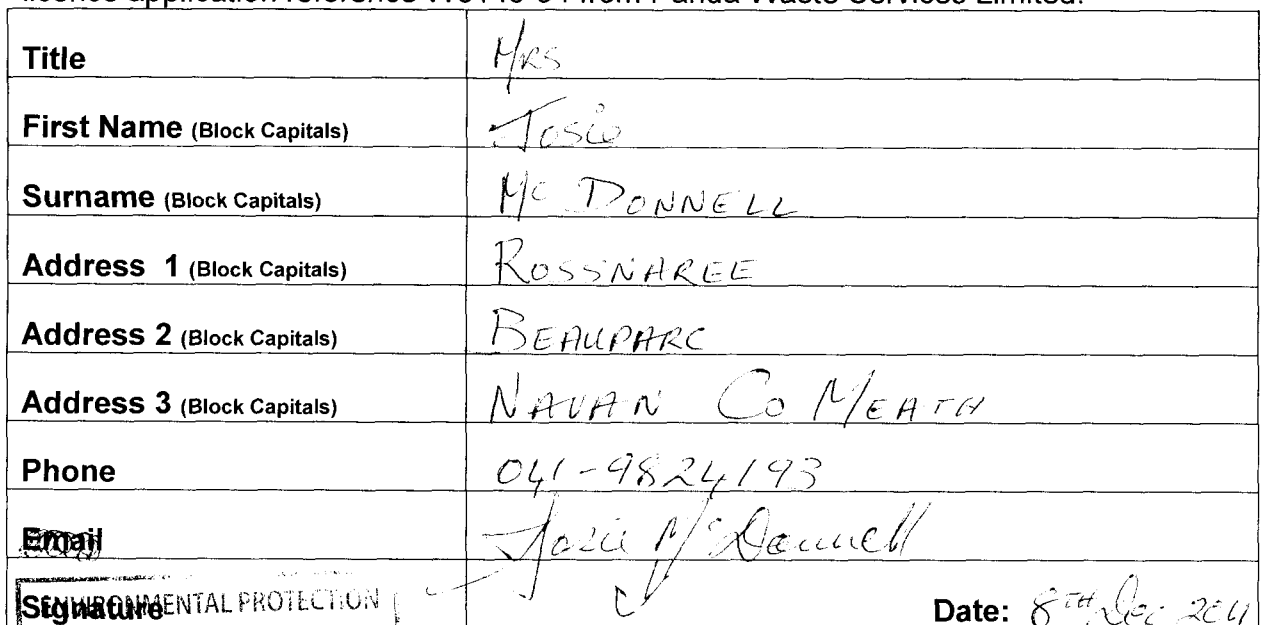 Title Mrs
First Name (Block Capitals) Josie
Surname (Block Capitals) Mc DONNELL
Address 1 (Block Capitals) ROSSNAREE
Address 2 (Block Capitals) BEAUPARC
Address 3 (Block Capitals) NAVAN Co MEATH
Phone 041-9824193
Email Josie McDonnell
Signature Date: 8TH Dec 2011
ENVIRONMENTAL PROTECTION